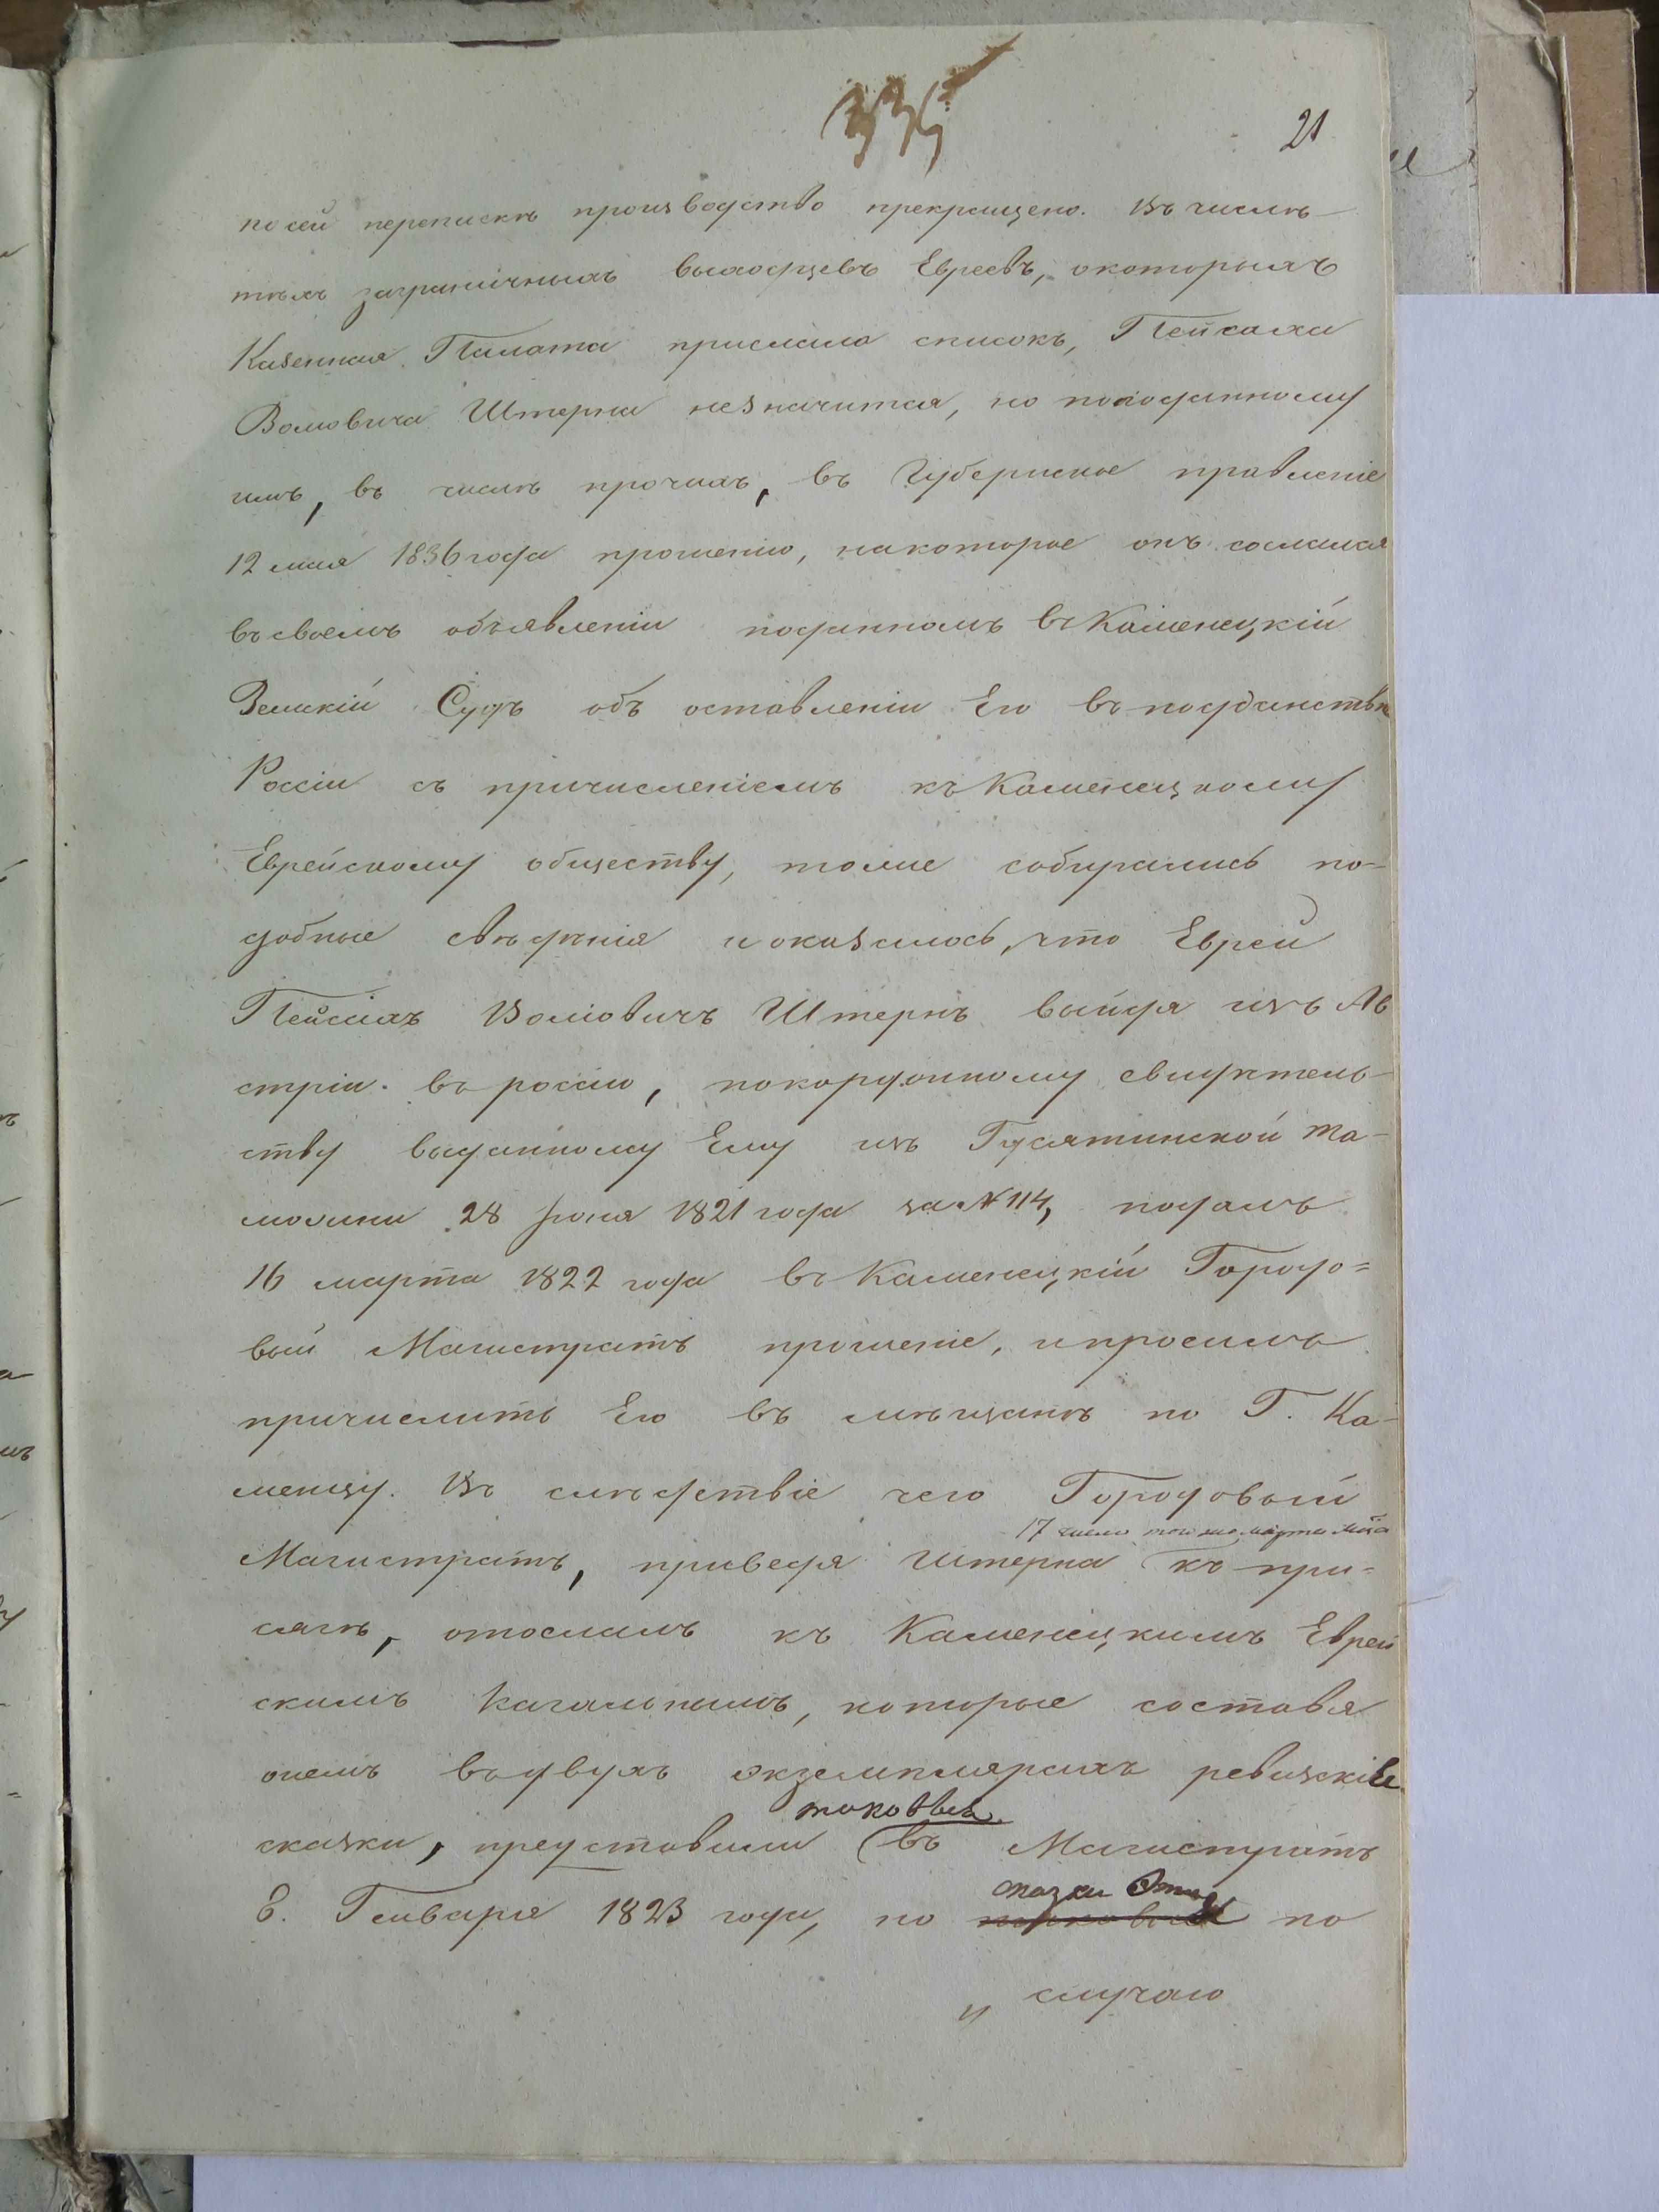 335
21
по сей перепискѣ производство прекращено. Въ числѣ
тѣхъ заграничныхъ выходцевъ Евреевъ, о которыхъ
Казенная Палата прислала списокъ, Пейсаха
Волковича Штерна незначится, но по поданному
имъ, въ числѣ прочихъ, въ Губернское правленіе
12 мая 1836 года прошенію, на которое онъ сослался
въ своемъ объявленіи поданномъ въ Каменецкій
Земскій Судъ объ оставленіи Его въ подданствѣ
Россіи съ причисленіемъ къ Каменецкому
Еврейскому обществу, тоже собирались по-
добные свѣденія и оказалось, что Еврей
Пейсахъ Волковичъ Штернъ выйдя изъ Ав
стріи въ россію, по кордонному свидѣтель-
ству выданному Ему изъ Гусятинской та-
можни 28 Іюля 1821 года за № 114, подалъ
16 марта 1822 года въ Каменецкій Городо=
вый Магистратъ прошеніе, и просилъ
причислить Его въ мѣщане по Г. Ка-
менцу. Въ слѣдствіе чего Городовый
17 число того же марта мца
Магистратъ, приведя Штерна къ при=
сягѣ, отослалъ къ Каменецкимъ Еврей
скимъ Кагальнымъ, которые составя
онемъ въ двухъ экземплярахъ ревизкіе
таковыя
сказки, представили въ Магистратъ
8. Генваря 1823 года, но
сказки Эти
по
случаю